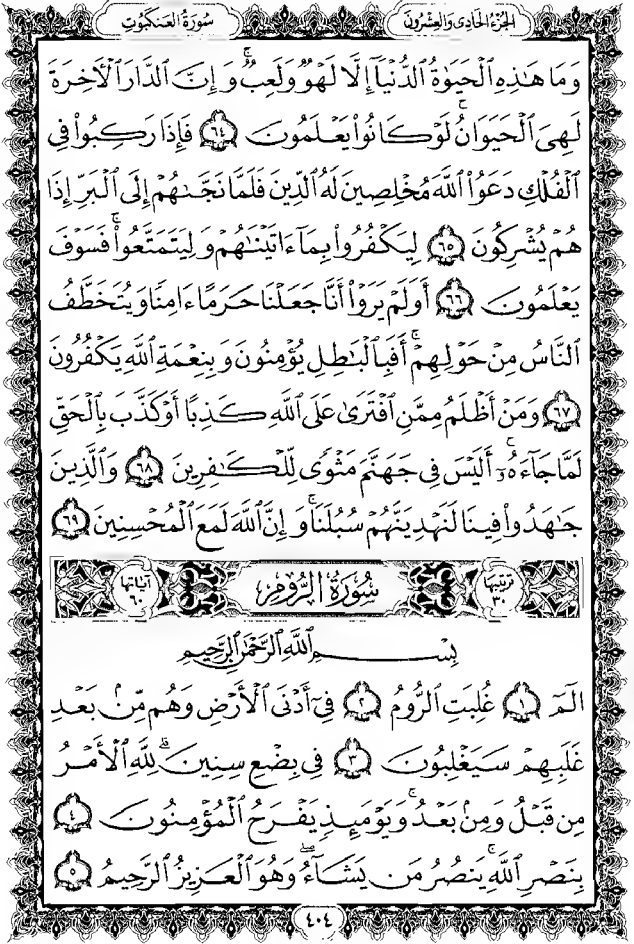 الجزء الحادي والعشرون
سورة العنكبوت
وَمَا هَٰذِهِ ٱلْحَيَوٰةُ ٱلدُّنْيَآ إِلَّا لَهْوٌ وَلَعِبٌ ۚ وَإِنَّ ٱلدَّارَ ٱلْءَاخِرَةَ
لَهِىَ ٱلْحَيَوَانُ ۚ لَوْ كَانُوا۟ يَعْلَمُونَ ٦٤ فَإِذَا رَكِبُوا۟ فِى
ٱلْفُلْكِ دَعَوُا۟ ٱللَّهَ مُخْلِصِينَ لَهُ ٱلدِّينَ فَلَمَّا نَجَّىٰهُمْ إِلَى ٱلْبَرِّ إِذَا
هُمْ يُشْرِكُونَ ٦٥ لِيَكْفُرُوا۟ بِمَآ ءَاتَيْنَٰهُمْ وَلِيَتَمَتَّعُوا۟ ۖ فَسَوْفَ
يَعْلَمُونَ ٦٦ أَوَلَمْ يَرَوْا۟ أَنَّا جَعَلْنَا حَرَمًا ءَامِنًا وَيُتَخَطَّفُ
ٱلنَّاسُ مِنْ حَوْلِهِمْ ۚ أَفَبِٱلْبَٰطِلِ يُؤْمِنُونَ وَبِنِعْمَةِ ٱللَّهِ يَكْفُرُونَ
٦٧ وَمَنْ أَظْلَمُ مِمَّنِ ٱفْتَرَىٰ عَلَى ٱللَّهِ كَذِبًا أَوْ كَذَّبَ بِٱلْحَقِّ
لَمَّا جَآءَهُۥٓ ۚ أَلَيْسَ فِى جَهَنَّمَ مَثْوًى لِّلْكَٰفِرِينَ ٦٨ وَٱلَّذِينَ
جَٰهَدُوا۟ فِينَا لَنَهْدِيَنَّهُمْ سُبُلَنَا ۚ وَإِنَّ ٱللَّهَ لَمَعَ ٱلْمُحْسِنِينَ ٦٩
ترتيبها ٣٠ سُورَةُ الرُّومِ آياتها ٦٠
بِسْمِ ٱللَّهِ ٱلرَّحْمَٰنِ ٱلرَّحِيمِ
الٓمٓ ١ غُلِبَتِ ٱلرُّومُ ٢ فِىٓ أَدْنَى ٱلْأَرْضِ وَهُم مِّنۢ بَعْدِ
غَلَبِهِمْ سَيَغْلِبُونَ ٣ فِى بِضْعِ سِنِينَ ۗ لِلَّهِ ٱلْأَمْرُ
مِن قَبْلُ وَمِنۢ بَعْدُ ۚ وَيَوْمَئِذٍ يَفْرَحُ ٱلْمُؤْمِنُونَ ٤
بِنَصْرِ ٱللَّهِ ۚ يَنصُرُ مَن يَشَآءُ ۖ وَهُوَ ٱلْعَزِيزُ ٱلرَّحِيمُ ٥
٤٠٤